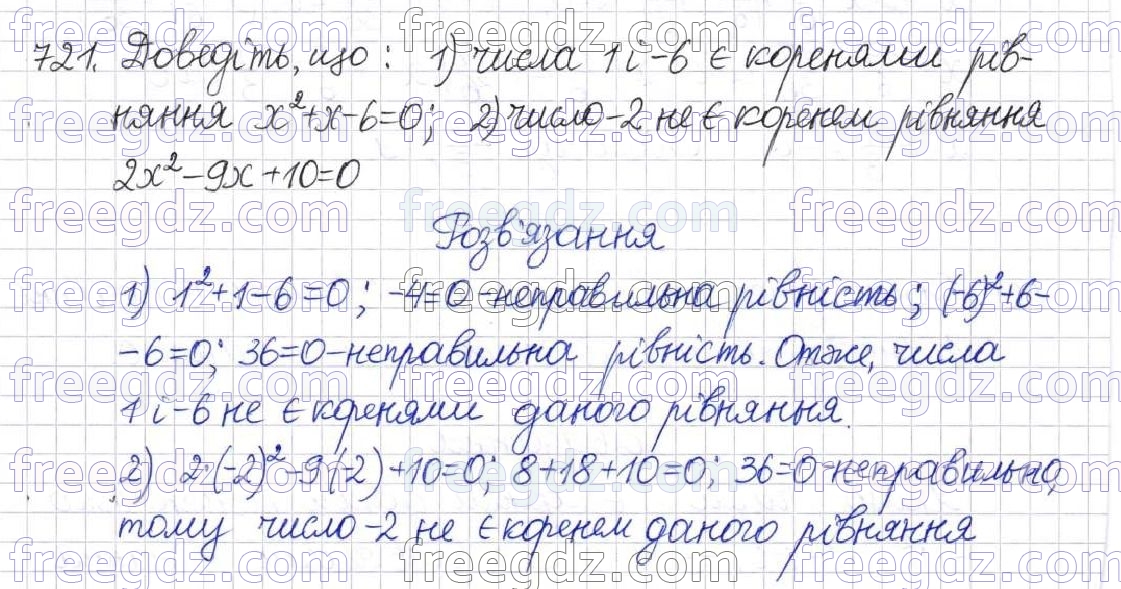 721. Доведіть, що: 1) числа 1 і -6 є коренями рів-
няння x²+x-6=0; 2) число -2 не є коренем рівняння
2x²-9x+10=0
Розв'язання
1) 1²+1-6=0; -4=0 -неправильна рівність; (-6)²+6-
-6=0; 36=0-неправильна рівність. Отже, числа
1 і -6 не є коренями даного рівняння.
2) 2·(-2)²-9·(-2)+10=0; 8+18+10=0; 36=0-неправильно,
тому число -2 не є коренем даного рівняння
freegdz.com